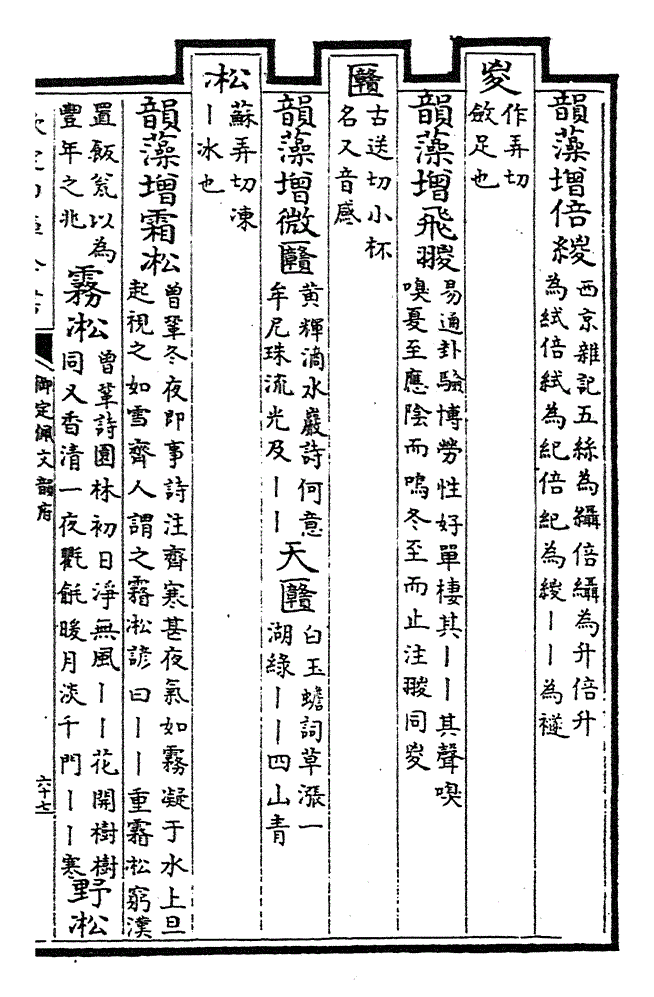 韻藻增倍緵西京雜記五絲為䌰倍䌰為升倍升
為紽倍紽為紀倍紀為緵丨丨為襚
夋作弄切
斂足也
韻藻增飛翪易通卦驗博勞性好單棲其丨丨其聲嗅
嗅夏至應陰而鳴冬至而止注翪同夋
𠥴古送切小杯
名又音感
韻藻增微𠥴黄輝滴水巖詩何意
牟尼珠流光及丨丨
天𠥴白玉蟾詞草漲一
湖綠丨丨四山青
凇蘇弄切凍
丨冰也
韻藻增霜凇曾鞏冬夜即事詩注齊寒甚夜氣如霧凝于水上旦
起視之如雪齊人謂之霧凇諺曰丨丨重霧凇窮漢
置飯瓮以為
豐年之兆
霧凇曾鞏詩園林初日淨無風丨丨花開樹樹
同又香清一夜氍毹暖月淡千門丨丨寒
野凇
御定佩文韻府
六十七